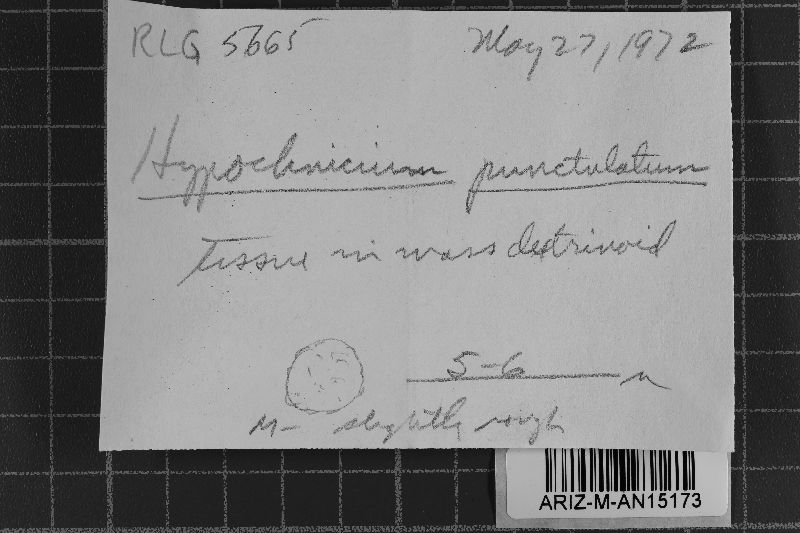 RLG 5665 May 27, 1972
Hypochnicium punctulatum
Tissue in mass dextrinoid
5-6 µ
M- slightly rough
ARIZ-M-AN15173